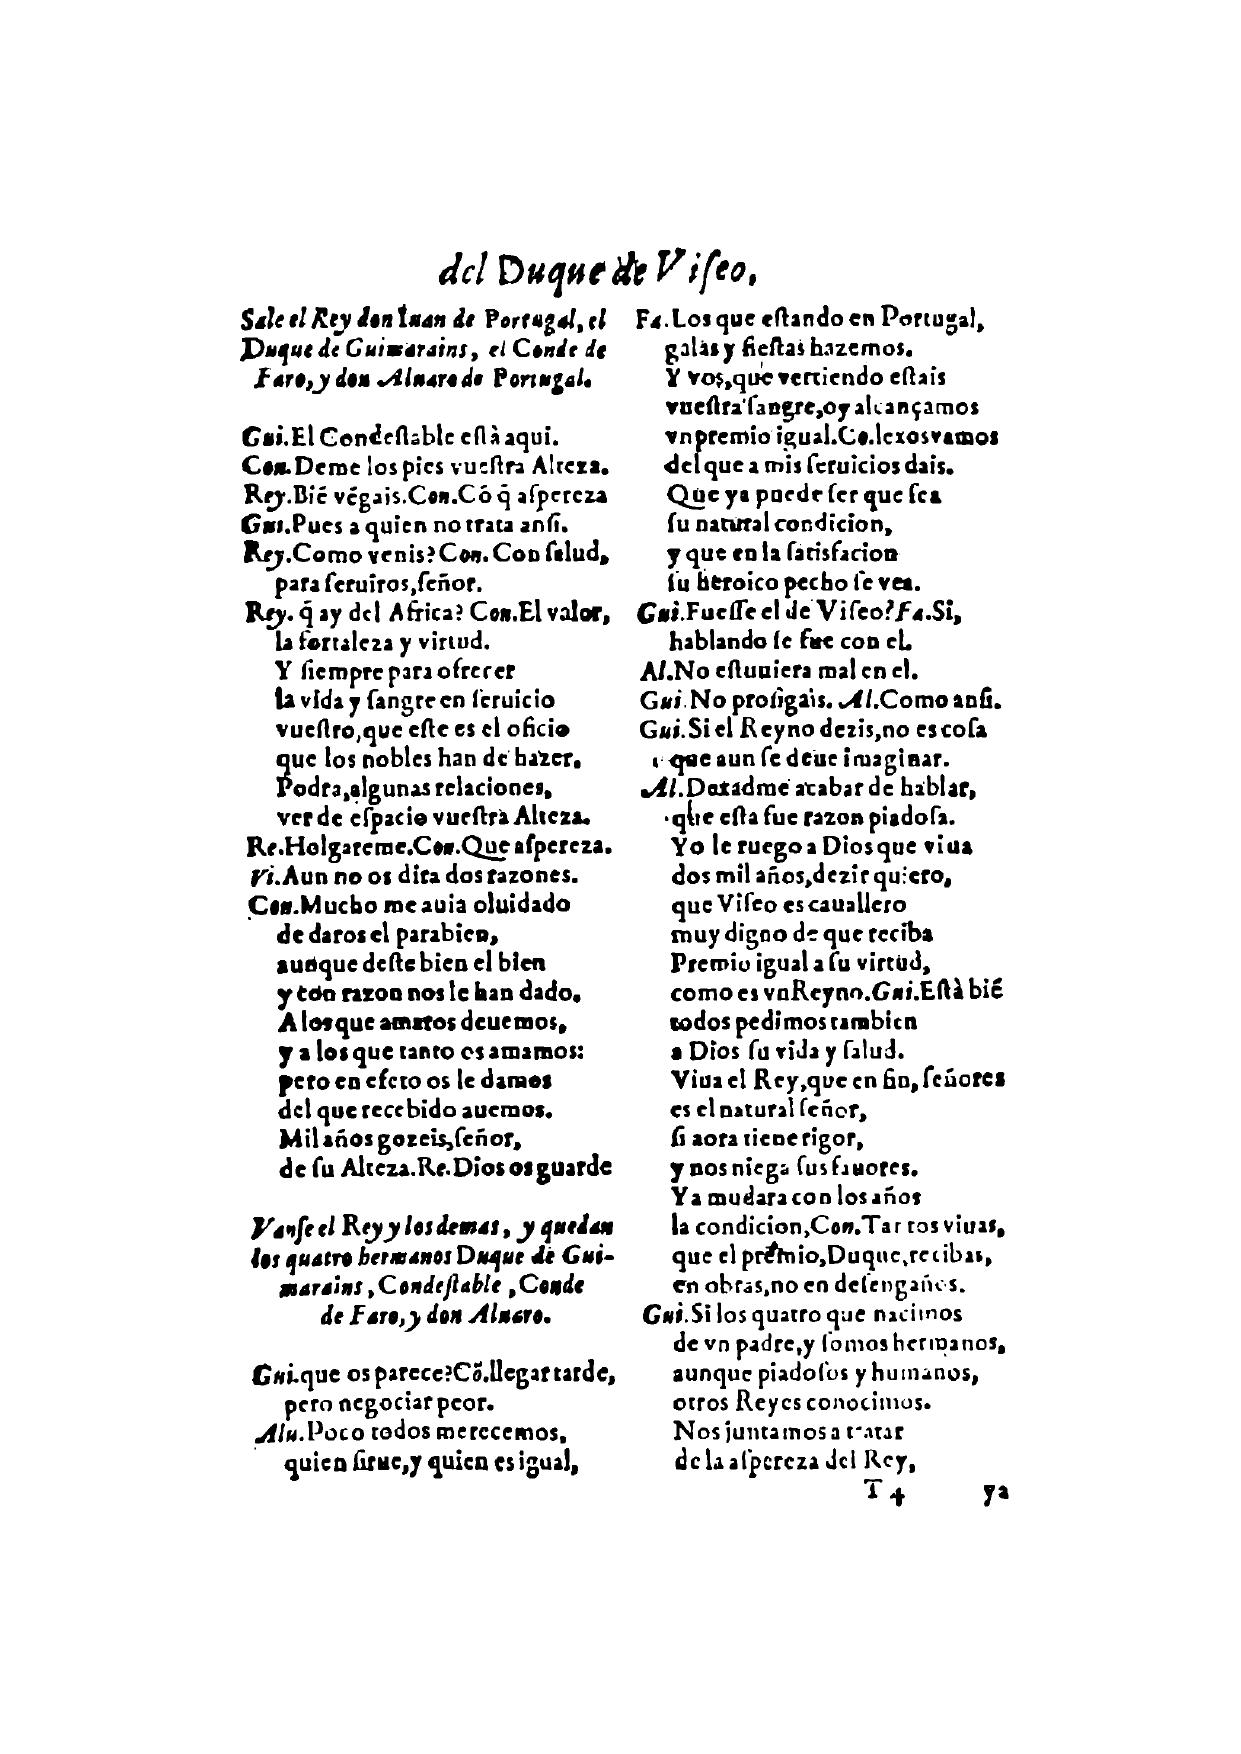 del Duque de Viſeo,
Sale el Rey don Iuan de Portugal, el
Duque de Guimarains, el Conde de
Faro, y don Aluaro de Portugal.
Gui. El Condeſtable eſtà aqui.
Con. Deme los pies vueſtra Alteza.
Rey. Biē vēgais. Con. Cō q̄ aſpereza
Gui. Pues a quien no trata anſi.
Rey. Como venis? Con. Con ſalud,
para ſeruiros, ſeñor.
Rey. q̄ ay del Africa? Con. El valor,
la fortaleza y virtud.
Y ſiempre para ofrecer
la vida y ſangre en ſeruicio
vueſtro, que eſte es el oficio
que los nobles han de hazer.
Podra, algunas relaciones,
ver de eſpacio vueſtra Alteza.
Re. Holgareme. Con. Que aſpereza.
Vi. Aun no os dira dos razones.
Con. Mucho me auia oluidado
de daros el parabien,
aunque deſte bien el bien
y con razon nos le han dado.
A los que amaros deuemos,
y a los que tanto os amamos:
pero en efeto os le damos
del que recebido auemos.
Mil años gozeis, ſeñor,
de ſu Alteza. Re. Dios os guarde
Vanſe el Rey y los demas, y quedan
los quatro hermanos Duque de Gui-
marains, Condeſtable, Conde
de Faro, y don Aluaro.
Gui. que os parece? Cō. llegar tarde,
pero negociar peor.
Alu. Poco todos merecemos,
quien ſirue, y quien es igual,
Fa. Los que eſtando en Portugal,
galas y fieſtas hazemos.
Y vos, que vertiendo eſtais
vueſtra ſangre, oy alcançamos
vn premio igual. Co. lexos vamos
del que a mis ſeruicios dais.
Que ya puede ſer que ſea
ſu natural condicion,
y que en la ſatisfacion
ſu heroico pecho ſe vea.
Gui. Fueſſe el de Viſeo? Fa. Si,
hablando ſe fue con el.
Al. No eſtuuiera mal en el.
Gui. No proſigais. Al. Como anſi.
Gui. Si el Reyno dezis, no es coſa
que aun ſe deue imaginar.
Al. Dexadme acabar de hablar,
que eſta fue razon piadoſa.
Yo le ruego a Dios que viua
dos mil años, dezir quiero,
que Viſeo es cauallero
muy digno de que reciba
Premio igual a ſu virtud,
como es vn Reyno. Gui. Eſtà biē
todos pedimos tambien
a Dios ſu vida y ſalud.
Viua el Rey, que en fin, ſeñores
es el natural ſeñor,
ſi aora tiene rigor,
y nos niega ſus fauores.
Ya mudara con los años
la condicion, Con. Tantos viuas,
que el premio, Duque, recibas,
en obras, no en deſengaños.
Gui. Si los quatro que nacimos
de vn padre, y ſomos hermanos,
aunque piadoſos y humanos,
otros Reyes conocimos.
Nos juntamos a tratar
de la aſpereza del Rey,
T 4 ya